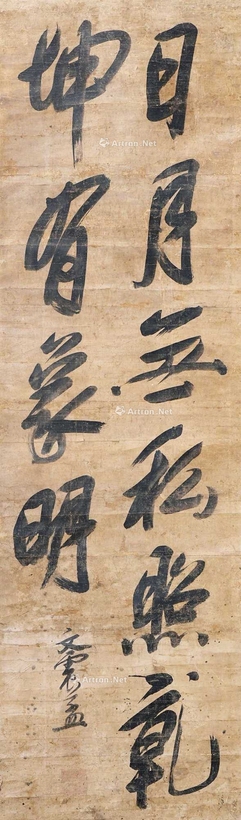 日月無私照乾
坤有義明
文震孟
Artron.Net
Artron.Net
Artron.Net